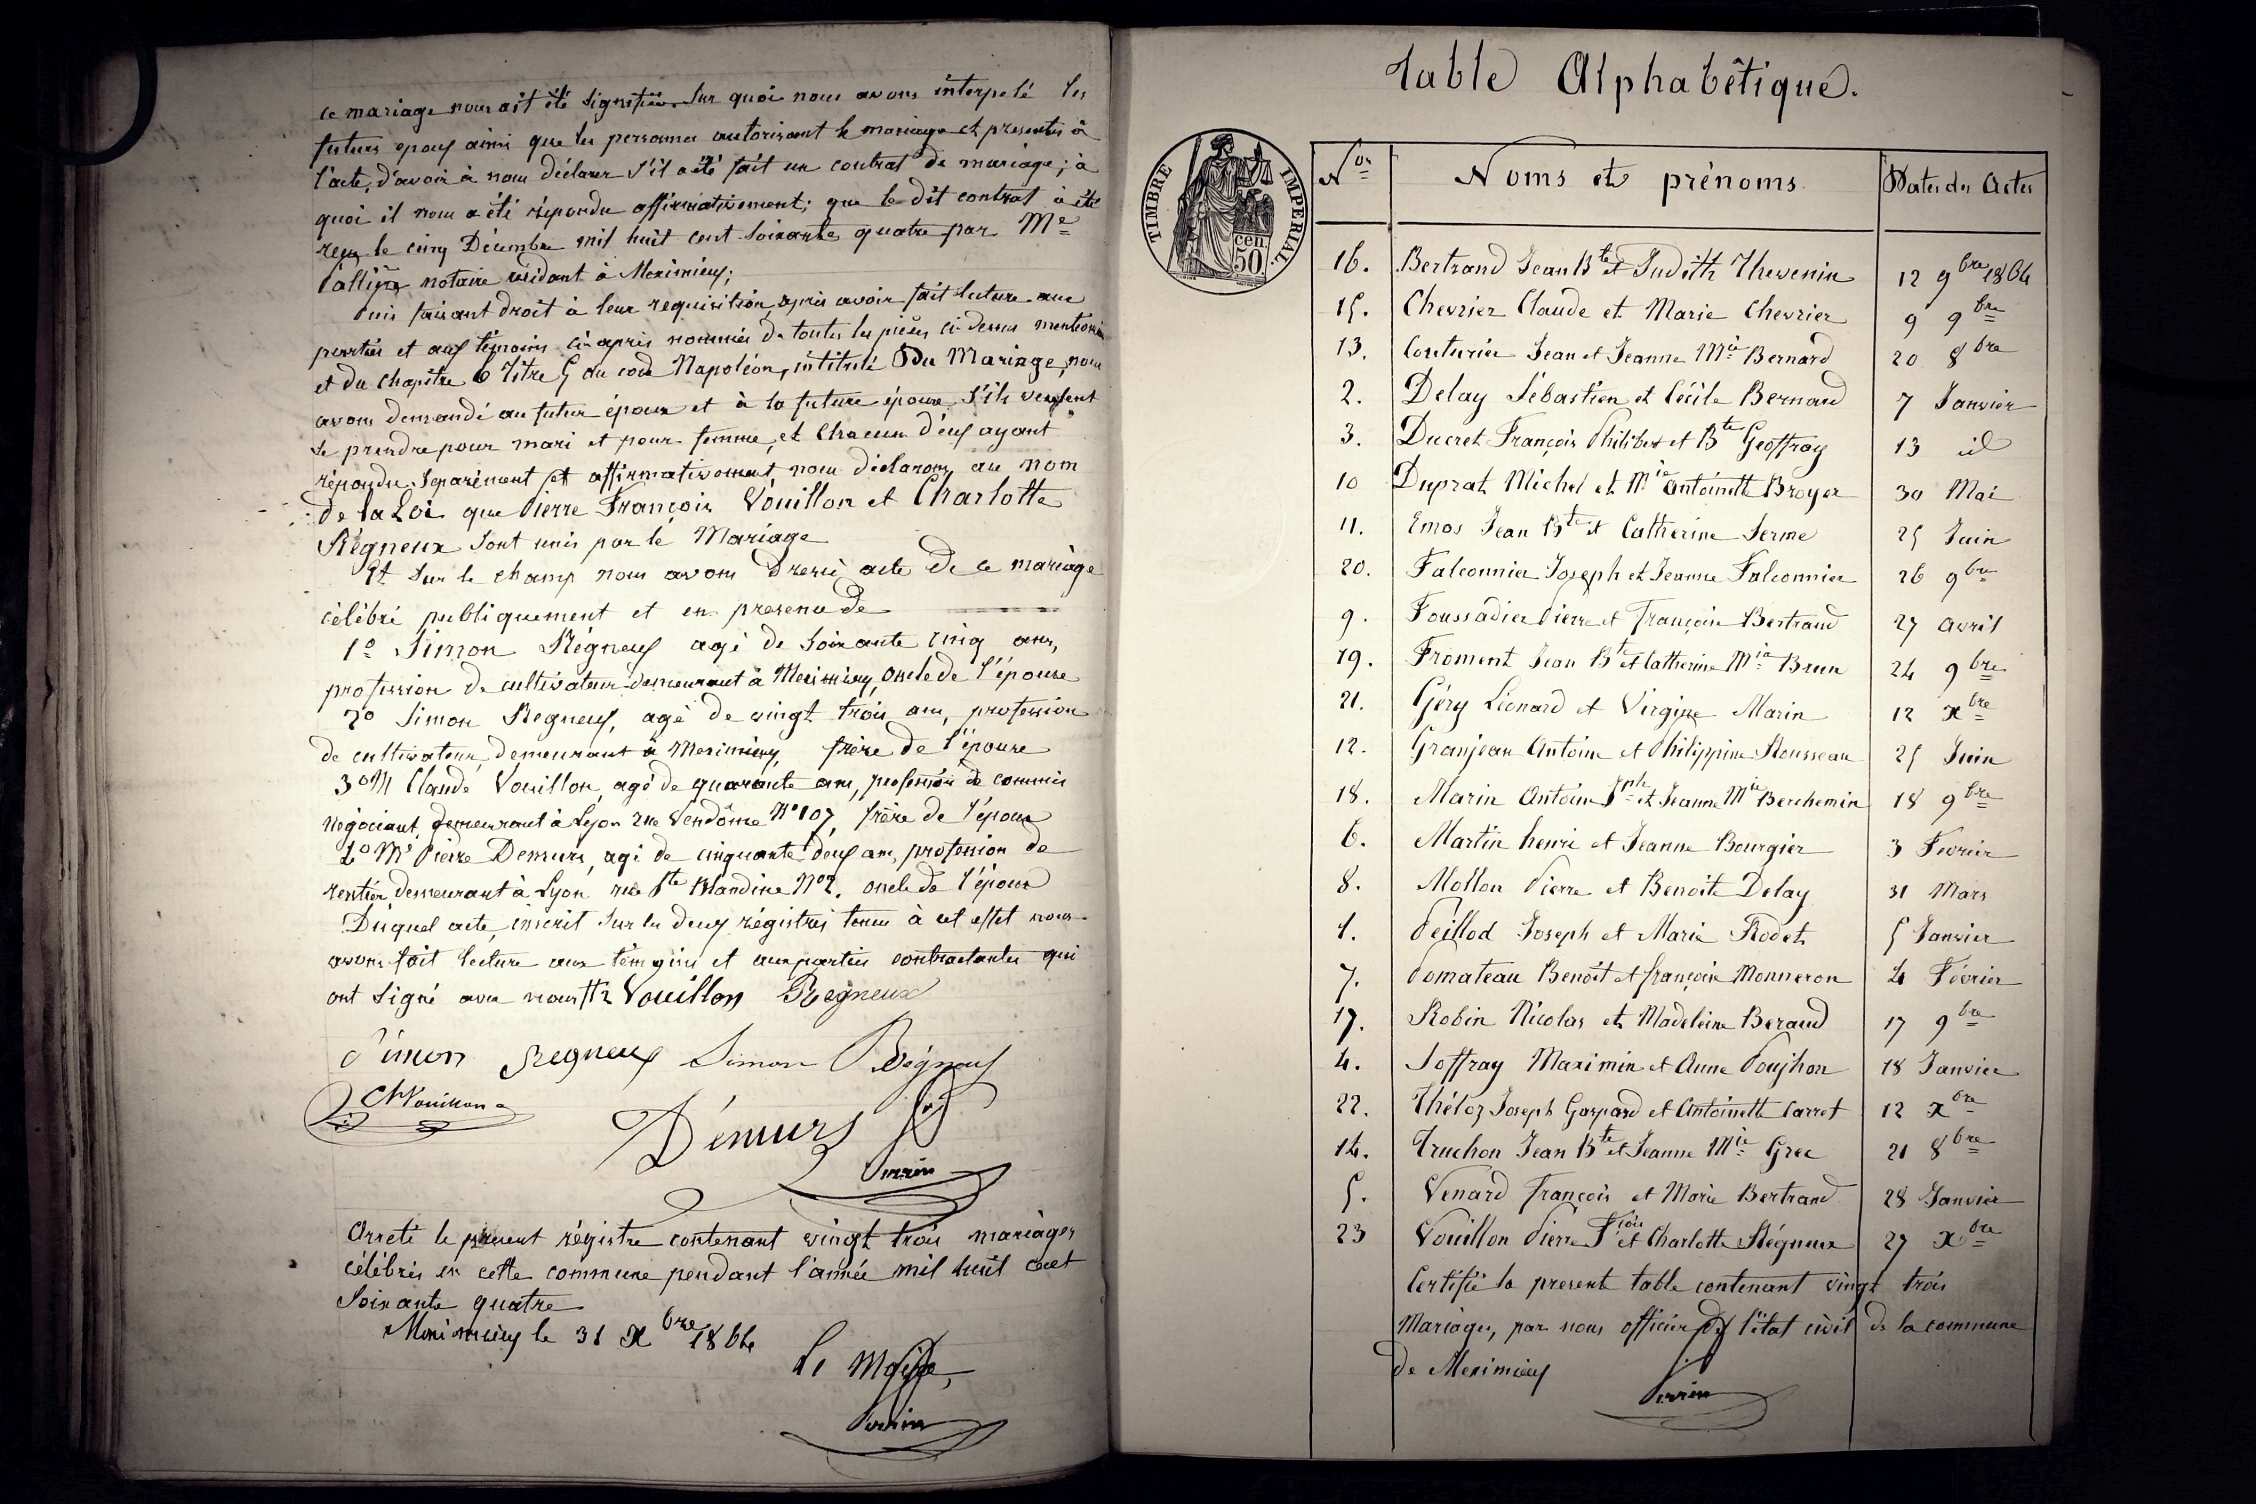 ce mariage nous ait été signifiée. Sur quoi nous avons interpelé les
futurs epoux ainsi que les personnes autorisant le mariage et presentes à
l'acte, d'avoir à nous déclarer s'il a été fait un contrat de mariage; à
quoi il nous a été répondu affirmativement; que le dit contrat à été
reçu le cinq Décembre mil huit cent soixante quatre par Me
notaire résidant à Meximieux;
Puis faisant droit à leur requisition, après avoir fait lecture aux
parties et aux témoins ci-après nommés de toutes les pièces ci-dessus mentionnées
et du chapitre 6 titre 5 du code Napoléon, intitulé Du Mariage, nous
avons demandé au futur époux et à la future épouse s'ils veulent
se prendre pour mari et pour femme, et chacun d'eux ayant
répondu séparément et affirmativement, nous déclarons au nom
de la Loi que Pierre François Vouillon et Charlotte
Régneux sont unis par le Mariage
Et sur le champ nous avons dressé acte de ce mariage
célébré publiquement et en presence de
1o Simon Régneux agé de soixante cinq ans,
profession de cultivateur demeurant à Meximieux, oncle de l'épouse
2o Simon Regneux, agé de vingt trois ans, profession
de cultivateur, demeurant à Meximieux, frère de l'épouse
3o M Claude Vouillon, agé de quarante ans, profession de commis
négociant, demeurant à Lyon rue Vendôme No 107, frère de l'époux
4o Mr Pierre Demurs, agé de cinquante deux ans, profession de
rentier demeurant à Lyon rue Ste Blandine No 2. oncle de l'époux
Duquel acte, inscrit sur les deux régistres tenus à cet effet nous
avons fait lecture aux témoins et aux parties contractantes qui
ont signé avec nous Vouillon Regneux
Simon Regneux Simon Régneux
Cl Vouillon
Démurs
Perrin
Arreté le present régistre contenant vingt trois mariages
célébrés en cette commune pendant l'année mil huit cent
soixante quatre
Meximieux le 31 Xbre 1864
Le Maire,
Perrin
Table Alphabétique.
TIMBRE IMPERIAL
50 cen.
Nos Noms et prénoms Dates des Actes
16. Bertrand Jean Bte et Judith Thevenin 12 9bre 1864
15. Chevrier Claude et Marie Chevrier 9 9bre
13. Couturier Jean et Jeanne Mie Bernard 20 8bre
2. Delay Sébastien et Cécile Bernard 7 Janvier
3. Ducret François Philibert et Bte Geoffray 13 id
10 Duprat Michel et Mie Antoinette Broyer 30 Mai
11. Emos Jean Bte et Catherine Serme 25 Juin
20. Falconnier Joseph et Jeanne Falconnier 26 9bre
9. Foussadier Pierre et Françoise Bertrand 27 avril
19. Froment Jean Bte et Catherine Mie Brun 24 9bre
21. Géry Léonard et Virginie Marin 12 Xbre
12. Granjean Antoine et Philippine Rousseau 25 Juin
18. Marin Antoine Jph et Jeanne Mie Berchemin 18 9bre
6. Martin henri et Jeanne Bourgier 3 Fevrier
8. Mollon Pierre et Benoite Delay 31 Mars
1. Peillod Joseph et Marie Rodet 5 Janvier
7. Pomateau Benoit et françoise Monneron 4 Février
17. Robin Nicolas et Madeleine Beraud 17 9bre
4. Joffray Maximin et Anne 18 Janvier
22. Joseph Gaspard et Antoinette Carret 12 Xbre
14. Truchon Jean Bte et Jeanne Mie Grec 21 8bre
5. Venard François et Marie Bertrand 28 Janvier
23 Vouillon Pierre Fçois et Charlotte Régneux 27 Xbre
Certifié la presente table contenant vingt trois
Mariages, par nous officier de l'état civil de la commune
de Meximieux
Perrin